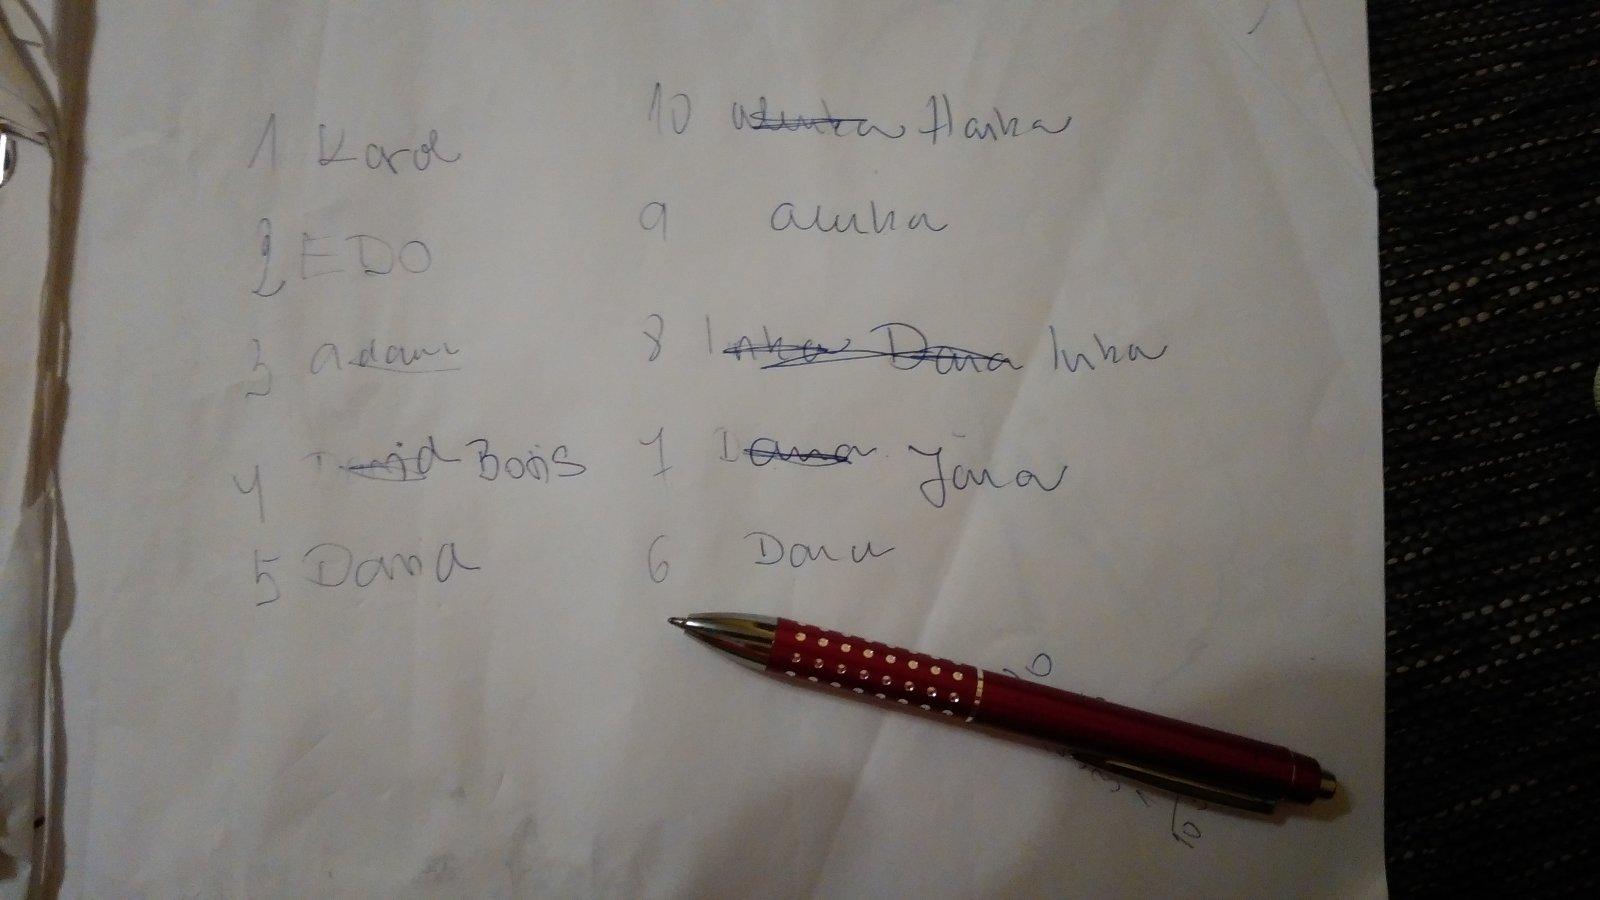 1 Karol
2 EDO
3 adam
4 Boris
5 David
10 Hanka
9 alenka
8 Inka Dana Inka
7 Dana Jana
6 Dana
10